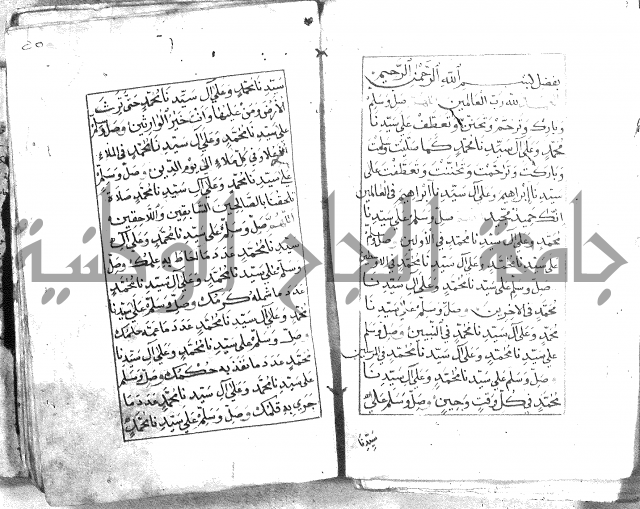 بفضل بسم الله الرحمن الرحيم
الحمد لله رب العالمين صل وسلم
وبارك وترحم وتحنن وتعطف على سيدنا
محمد وعلى آل سيدنا محمد كما صليت وسلمت
وباركت وترحمت وتحننت وتعطفت على
سيدنا إبراهيم وعلى آل سيدنا إبراهيم في العالمين
إنك حميد مجيد صل وسلم على سيدنا
محمد وعلى آل سيدنا محمد في الأولين وصل وسلم
على سيدنا محمد وعلى آل سيدنا محمد في الآخرين
صل وسلم على سيدنا محمد وعلى آل سيدنا
محمد في الآخرين صل وسلم على سيدنا
محمد وعلى آل سيدنا محمد في النبيين وصل وسلم
على سيدنا محمد وعلى آل سيدنا محمد في المرسلين
وصل وسلم على سيدنا محمد وعلى آل سيدنا
محمد في كل وقت وحين وصل وسلم على
سيدنا
سيدنا محمد وعلى آل سيدنا محمد حتى ترث
الأرض ومن عليها وأنت خير الوارثين وصل وسلم
على سيدنا محمد وعلى آل سيدنا محمد في الملاء
الأعلى وفي كل ملاء إلى يوم الدين وصل وسلم
على سيدنا محمد وعلى آل سيدنا محمد صلاة
تلحقنا بالصالحين السابقين واللاحقين
صل وسلم على سيدنا محمد وعلى آل
سيدنا محمد عدد ما أحاط به علمك وصل
وسلم على سيدنا محمد وعلى آل سيدنا محمد
عدد ما شمله كرمك وصل وسلم على سيدنا
محمد وعلى آل سيدنا محمد عدد ما عمه حلمك
صل وسلم على سيدنا محمد وعلى آل سيدنا
محمد عدد ما نفذ به حكمك وصل وسلم
على سيدنا محمد وعلى آل سيدنا محمد عدد ما
جرى به قلمك وصل وسلم على سيدنا محمد
جامعة النجاح الوطنية